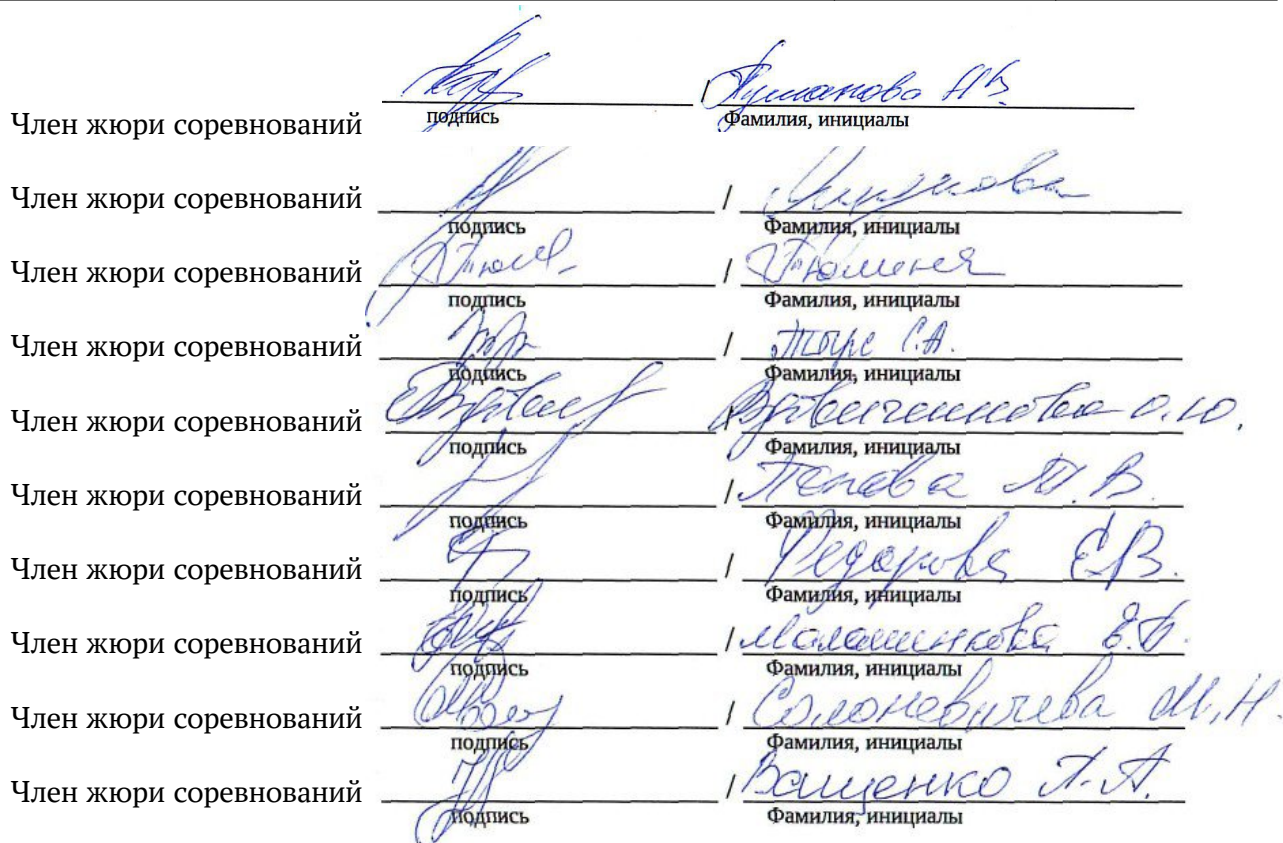 Член жюри соревнований / Туманова Н.В.
подпись Фамилия, инициалы
Член жюри соревнований /
подпись Фамилия, инициалы
Член жюри соревнований / Тюменея
подпись Фамилия, инициалы
Член жюри соревнований / С.А.
подпись Фамилия, инициалы
Член жюри соревнований / О.Ю.
подпись Фамилия, инициалы
Член жюри соревнований / Попова Т.В.
подпись Фамилия, инициалы
Член жюри соревнований / Федорова Е.В.
подпись Фамилия, инициалы
Член жюри соревнований / Малашенкова Е.В.
подпись Фамилия, инициалы
Член жюри соревнований / Солоневичева М.Н.
подпись Фамилия, инициалы
Член жюри соревнований / Ващенко Л.А.
подпись Фамилия, инициалы